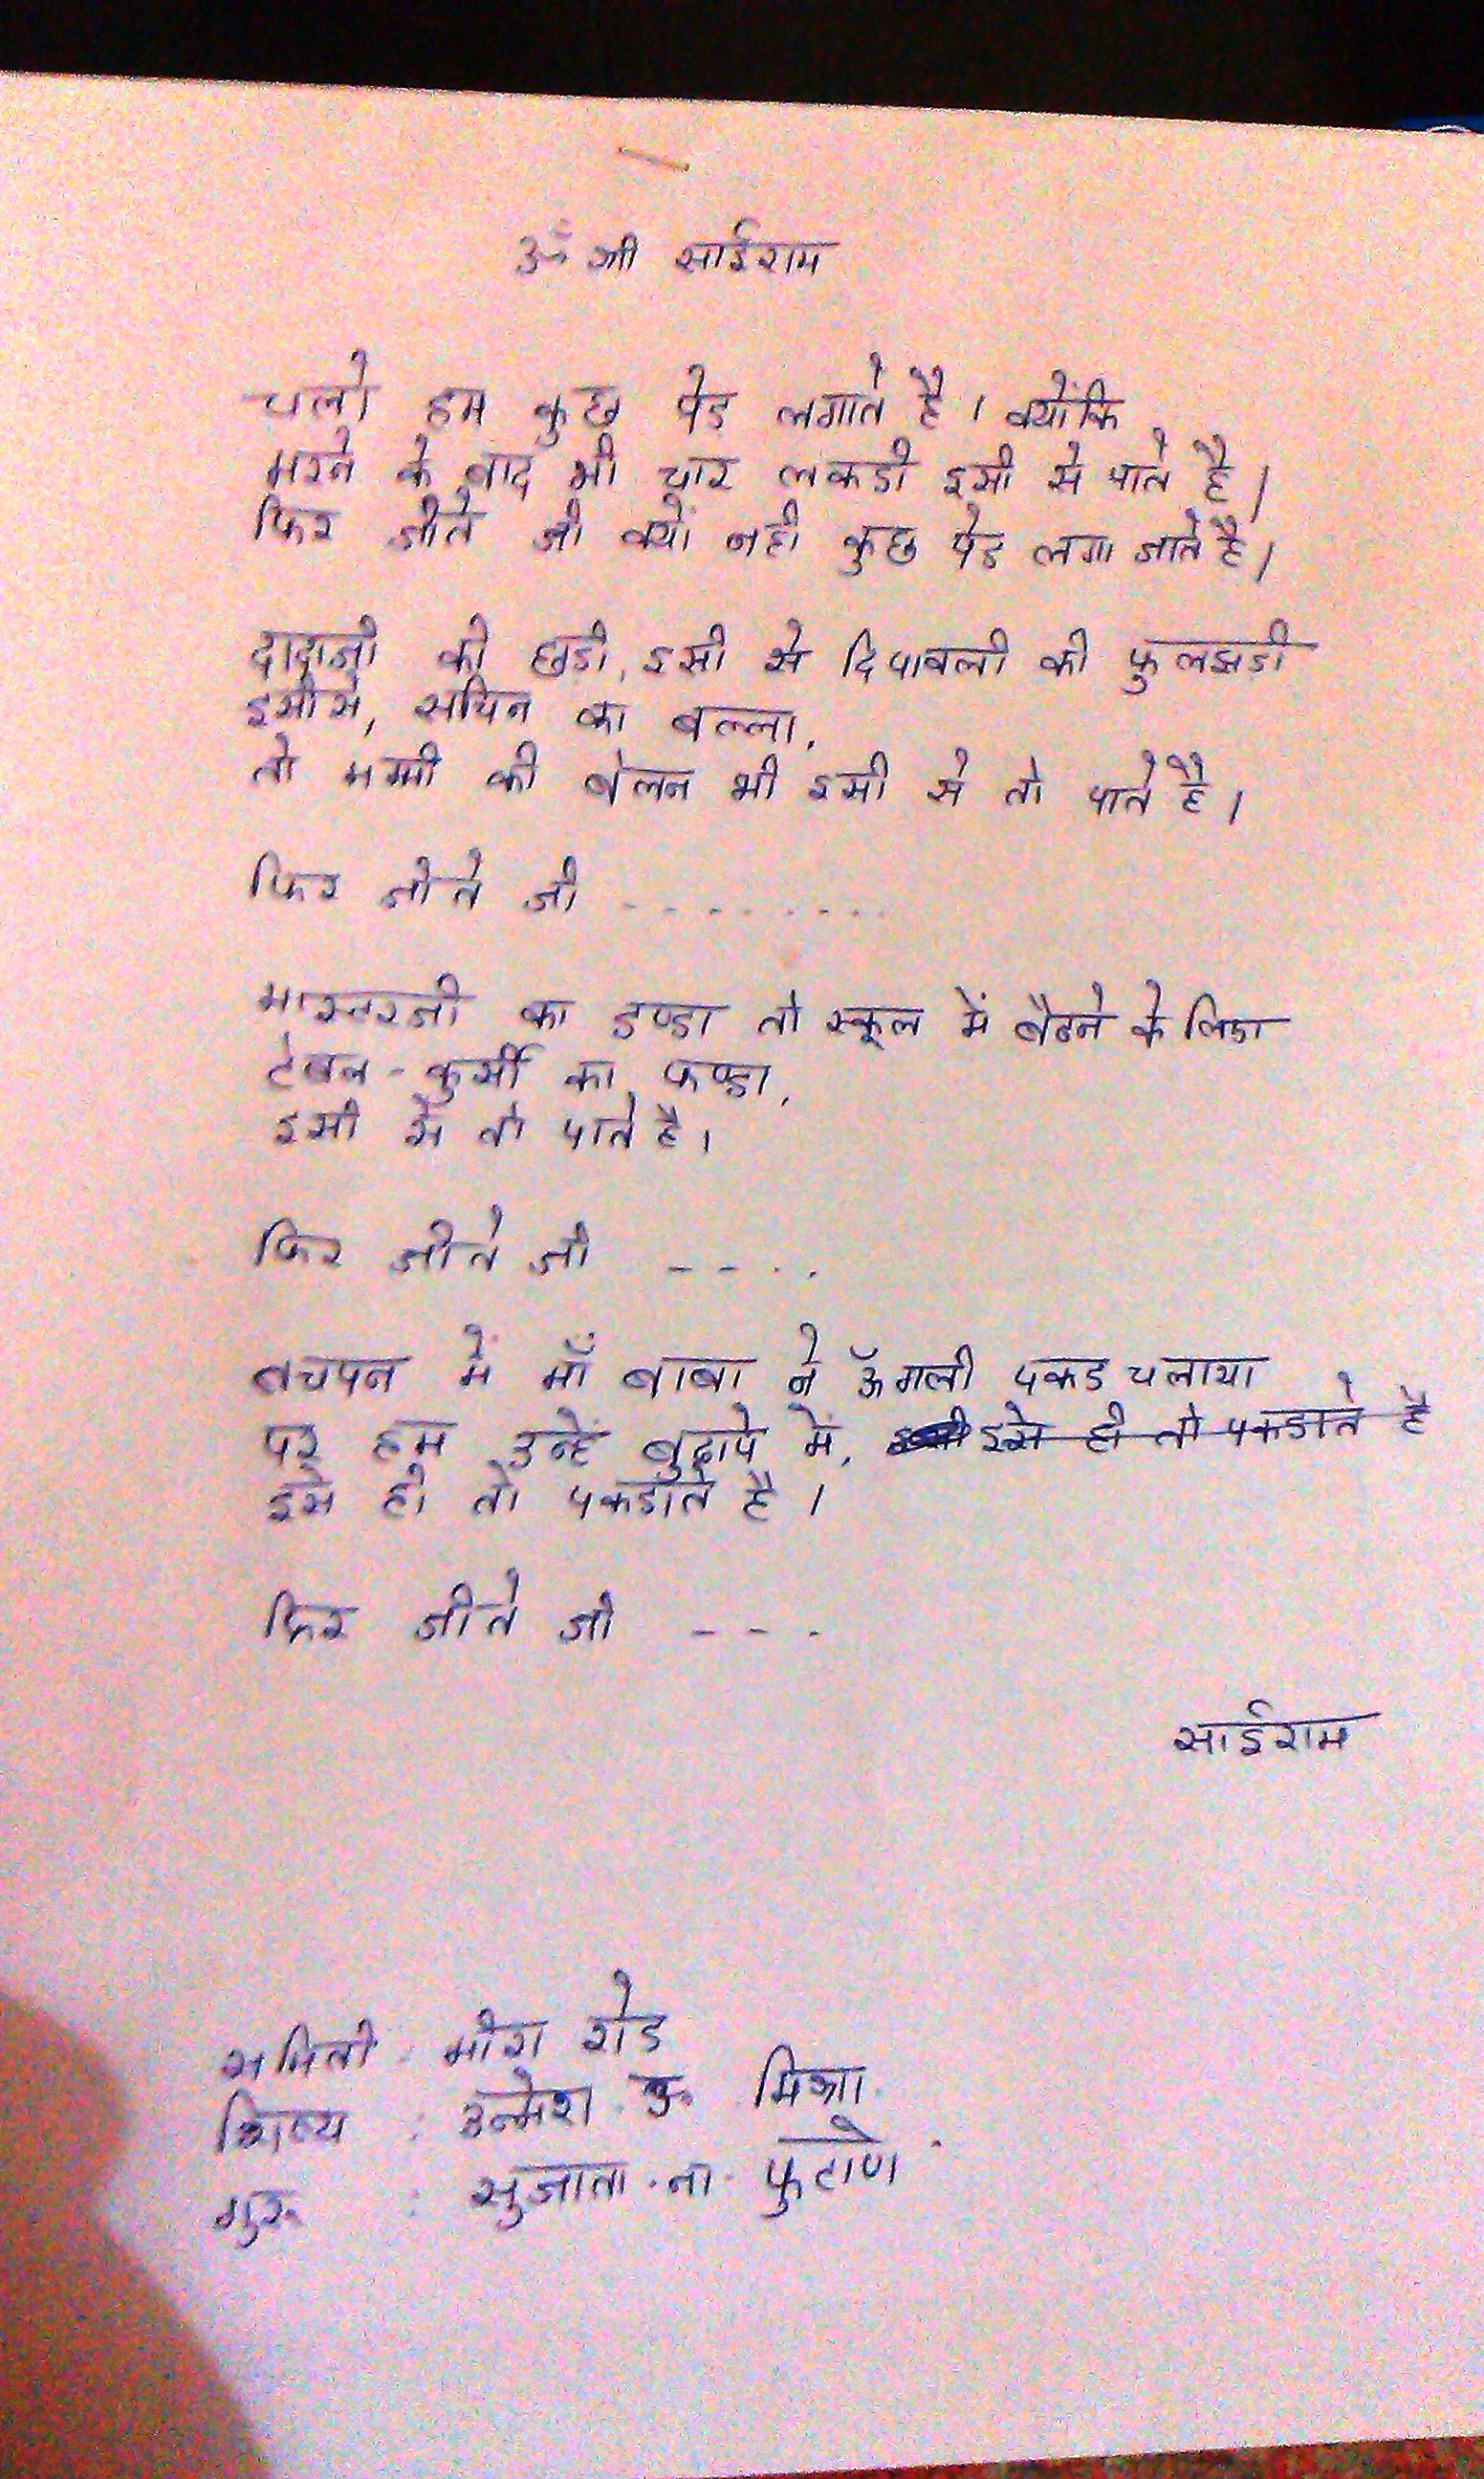 ॐ श्री साईराम
चलो हम कुछ पेड लगाते है। क्योंकि
मरने के बाद भी चार लकडी इसी से पाते है।
फिर जीते जी क्यों नही कुछ पेड लगा जाते है।
दादाजी की छडी, इसी से दिपावली की फुलझडी
इसीसे, सचिन का बल्ला,
तो मम्मी की बेलन भी इसी से तो पाते है।
फिर जीते जी ---------
मास्तरजी का डण्डा तो स्कूल में बैठने के लिए
टेबल - कुर्सी का फण्डा,
इसी से तो पाते है।
फिर जीते जी ----
बचपन में माँ बाबा ने ऊँगली पकड चलाया
पर हम उन्हें बुढापे में, इसे ही तो पकडाते है
इसे ही तो पकडाते है।
फिर जीते जी ---
साईराम
समिती : मीरा रोड
शिष्य : उन्मेश. कु. मिश्रा.
गुरु : सुजाता. ना. फुटाणे.